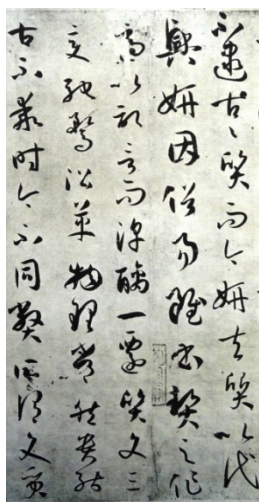 不逮古〻質而今妍夫質以代
興妍因俗易雖書契之作
適以記言而淳醨一遷質文三
變馳騖沿革物理常然貴能
古不乖時今不同弊所謂文質